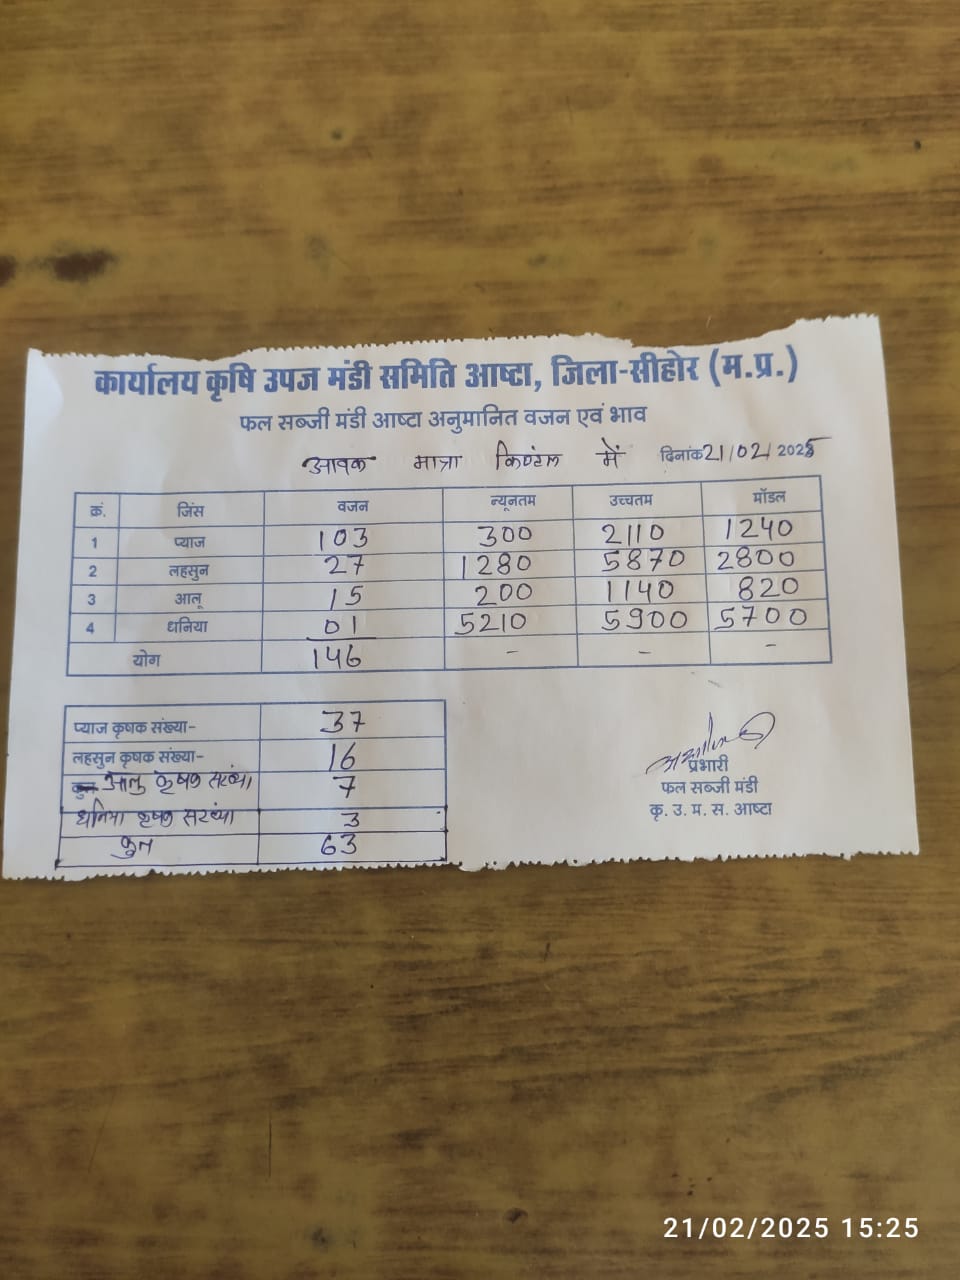 कार्यालय कृषि उपज मंडी समिति आष्टा, जिला-सीहोर (म.प्र.)
फल सब्जी मंडी आष्टा अनुमानित वजन एवं भाव
आवक मात्रा किण्टल में दिनांक 21/02/2025
क्रं. जिंस वजन न्यूनतम उच्चतम मॉडल
1 प्याज 103 300 2110 1240
2 लहसुन 27 1280 5870 2800
3 आलू 15 200 1140 820
4 धनिया 01 5210 5900 5700
योग 146 - - -
प्याज कृषक संख्या- 37
लहसुन कृषक संख्या- 16
आलु कृषक संख्या 7
धनिया कृषक संख्या 3
कुल 63
प्रभारी
फल सब्जी मंडी
कृ. उ. म. स. आष्टा
21/02/2025 15:25